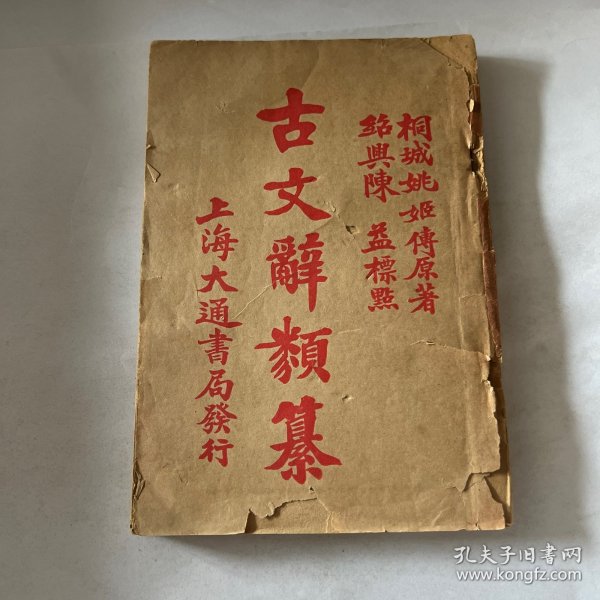 桐城姚姬傳原著
紹興陳 益標點
古文辭類纂
上海大通書局發行
孔夫子旧书网
www.kongfz.com